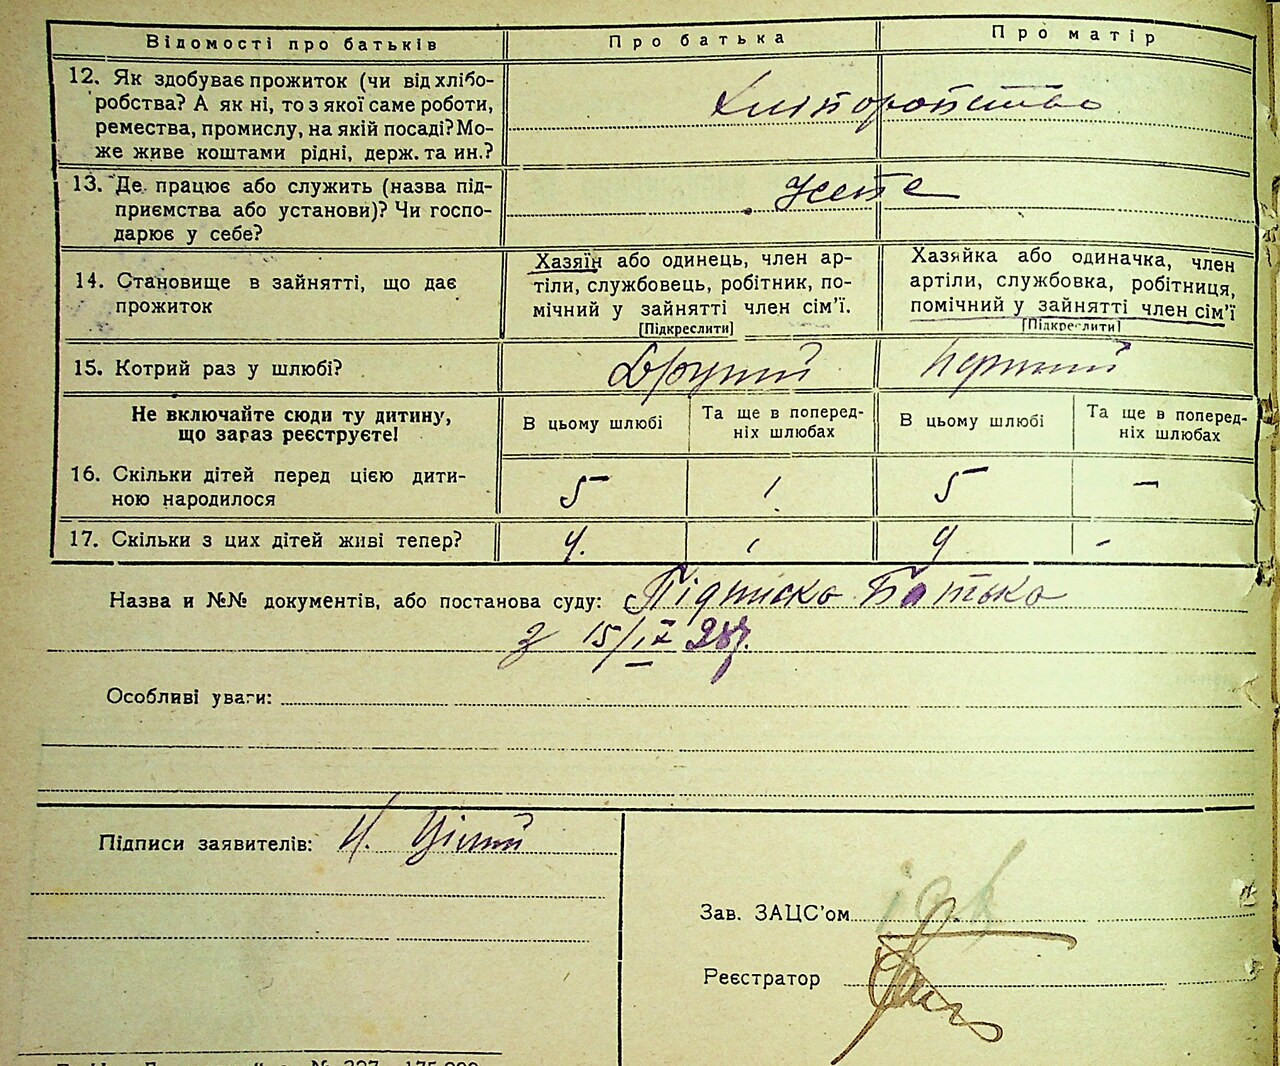 Відомості про батьків Про батька Про матір
12. Як здобуває прожиток (чи від хлібо-
робства? А як ні, то з якої саме роботи,
ремества, промислу, на якій посаді? Мо-
же живе коштами рідні, держ. та ин.?
Хліборобство
13. Де працює або служить (назва під-
приємства або установи)? Чи госпо-
дарює у себе?
у себе
14. Становище в зайнятті, що дає
прожиток
Хазяїн або одинець, член ар-
тіли, службовець, робітник, по-
мічний у зайнятті член сім'ї.
[Підкреслити]
Хазяйка або одиначка, член
артіли, службовка, робітниця,
помічний у зайнятті член сім'ї
[Підкреслити]
15. Котрий раз у шлюбі? Другий Перший
Не включайте сюди ту дитину,
що зараз реєструєте!
В цьому шлюбі
Та ще в поперед-
ніх шлюбах
В цьому шлюбі
Та ще в поперед-
ніх шлюбах
16. Скільки дітей перед цією дити-
ною народилося
5 1 5 -
17. Скільки з цих дітей живі тепер? 4. 1 4 -
Назва и №№ документів, або постанова суду: Підписка Батька
з 15/IX 28р.
Особливі уваги:
Підписи заявителів:
Зав. ЗАЦС'ом
Реєстратор
№ 327 175.000